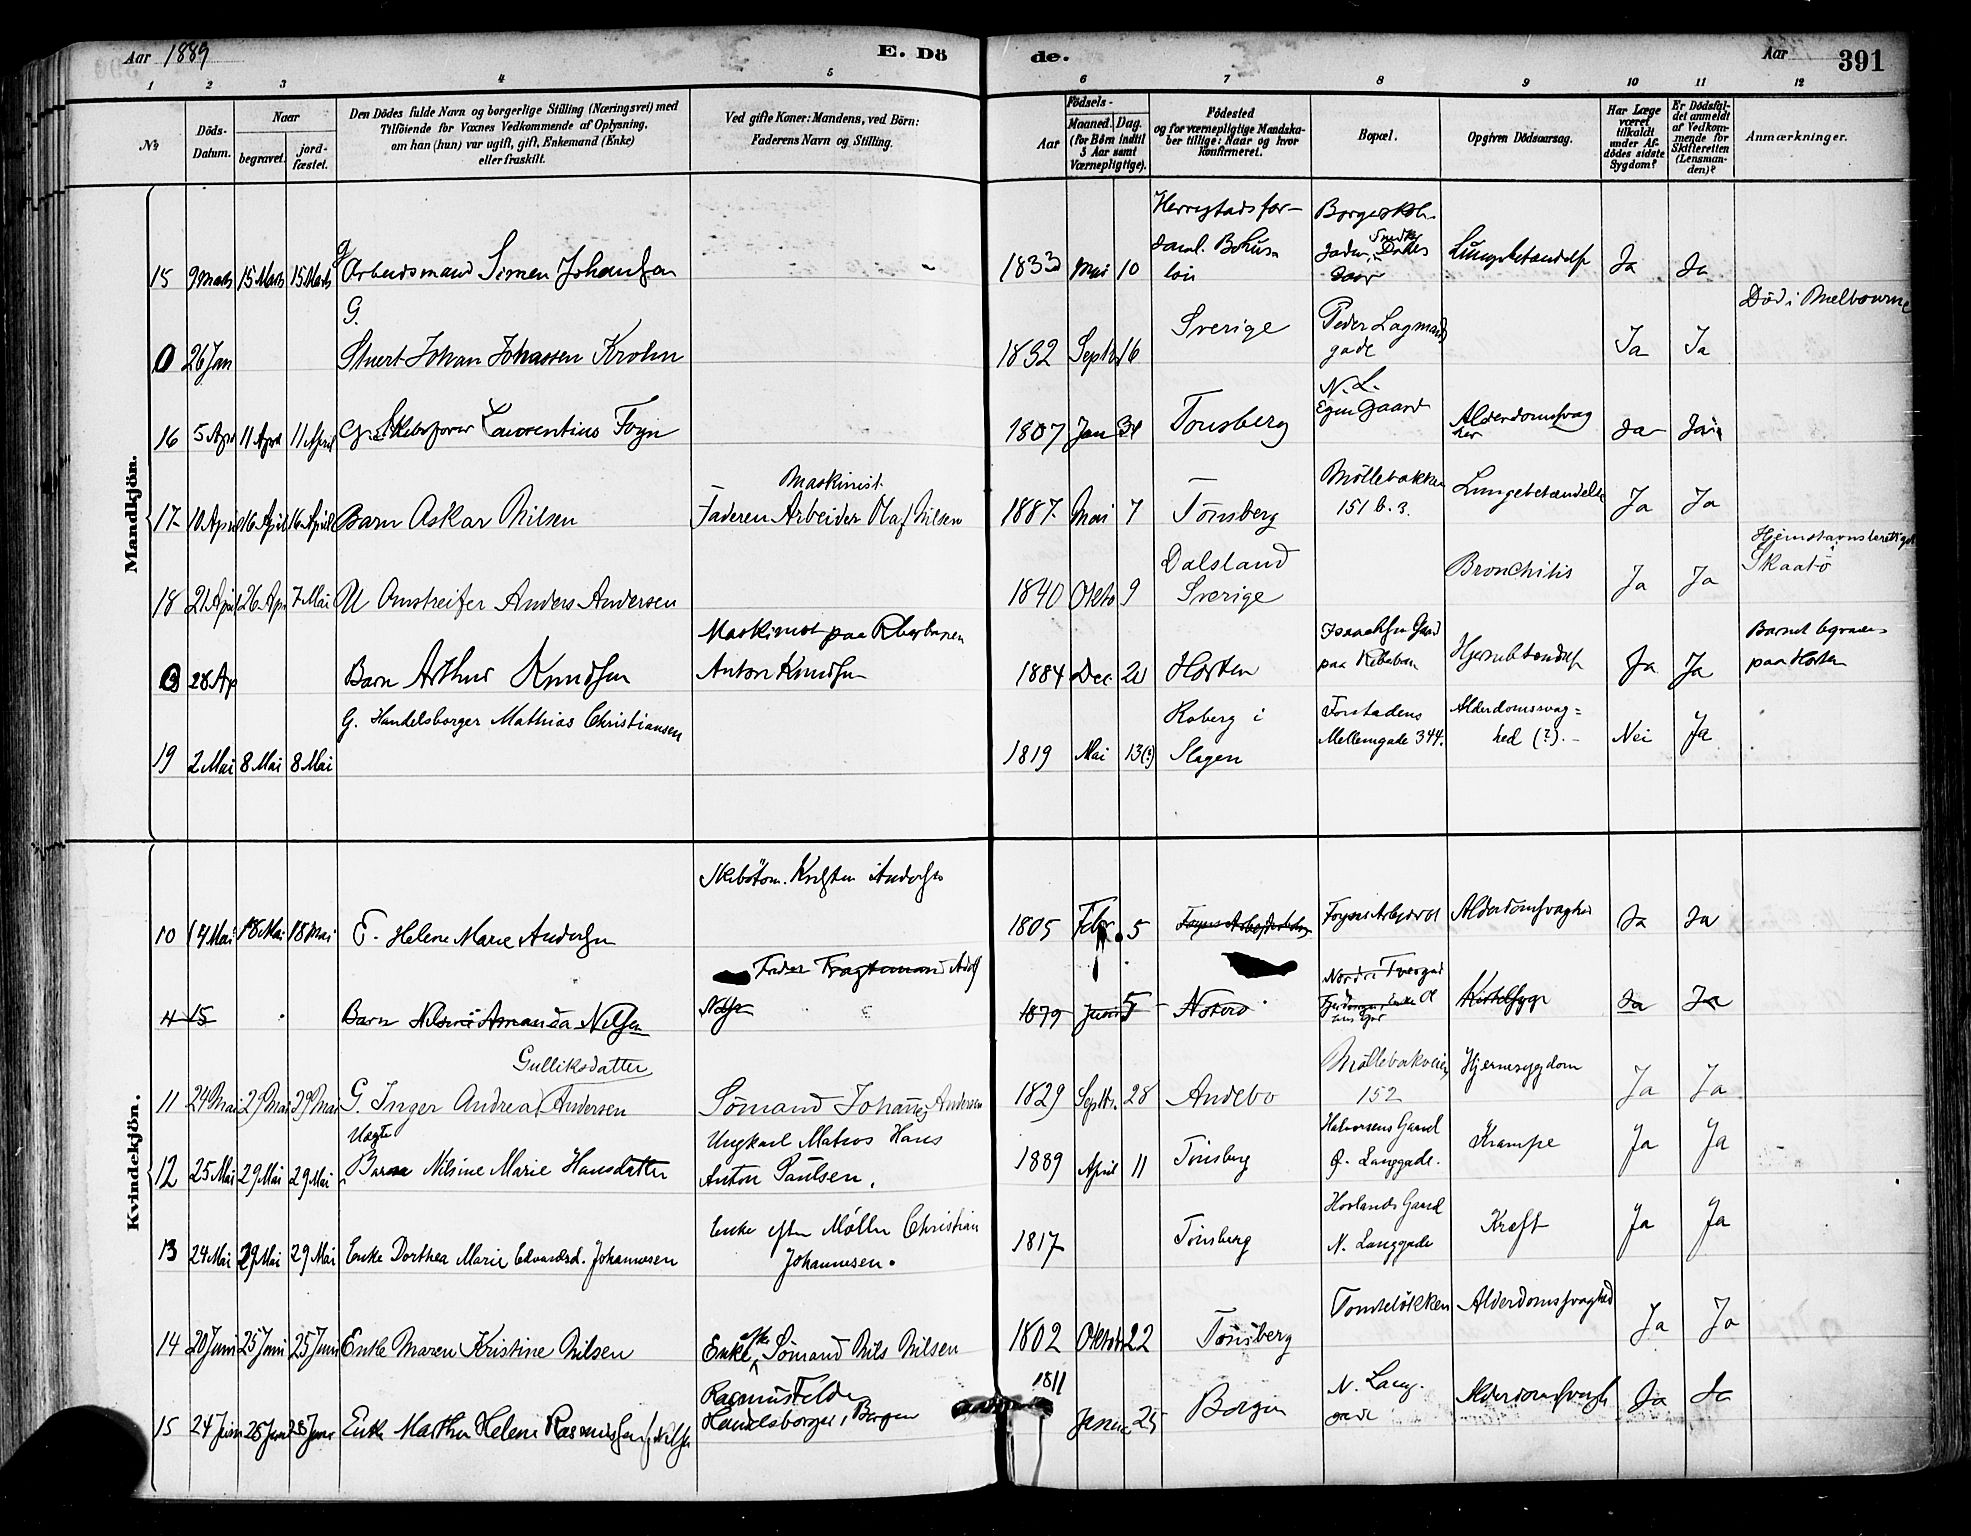 Aar 1889
E. Dö
de.
Aar
391
1 2 3 4 5 6 7 8 9 10 11 12
№
Döds-Datum.
Naar
begravet.
jord-fæstet.
Den Dödes fulde Navn og borgerlige Stilling (Næringsvei) med
Tilföiende for Voxnes Vedkommende af Oplysning,
om han (hun) var ugift, gift, Enkemand (Enke)
eller fraskilt.
Ved gifte Koner: Mandens, ved Börn:
Faderens Navn og Stilling.
Födsels-
Aar
Maaned. Dag.
(for Börn indtil
5 Aar samt
Værnepligtige).
Födested
og for værnepligtige Mandska-
ber tillige: Naar og hvor
konfirmeret.
Bopæl.
Opgiven Dödsaarsag.
Har Læge
været
tilkaldt
under Af-
dödes sidste
Sygdom?
Er Dödsfal-
det anmeldt
af Vedkom-
mende for
Skifteretten
(Lensman-
den)?
Anmærkninger.
Mandkjön.
15 9 Marts 15 Marts 15 Marts G Arbeidsmand Simen Johansen 1833 Mai 10 Ja Ja
G.
0 26 Jan Stuert Johan Johassen Krohn 1832 Septbr 16 Sverige Peder Lagmands gade Ja Ja Död i Melbourne
16 5 Apr 11 Apr 11 April G. Skibsförer Laurentius Foyn 1807 Jan 31 Tönsberg N. L. Egen Gaard Ja Ja
17 10 April 16 April 16 April Barn Askar Nilsen Faderen Arbeider Olaf Nilsen Maskinist 1887 Mai 7 Tönsberg Möllebakken 151 b. 3. Lungebetændelse Ja Ja
18 21 April 26 Apr 7 Mai U Omstreifer Anders Andersen 1840 Oktb 9 Dalsland Sverige Bronchitis Ja Ja Hjemstavnsberettiget i Skaatö
0 28 Ap Barn Arthur Knudsen Maskinist paa Anton Knudsen 1884 Dec. 21 Horten Ja Ja Barnet begraves paa Horten
19 2 Mai 8 Mai 8 Mai G. Handelsborger Mathias Christiansen 1819 Mai 13(?) Roberg i Slagen Forstadens Mellemgade 344. Alderdomssvag=hed (?). Nei Ja
Kvindekjön.
10 14 Mai 18 Mai 18 Mai E. Helene Marie Andersen 1805 Febr. 5 Alderdomsvaghed Ja Ja
4 15 Barn Nilsine Amanda Nilsen Fader Fragtemand Adolf Nilsen 1879 Juni 5 Nöterö Ja Ja
Gulliksdatter
11 24 Mai 29 Mai 29 Mai G. Inger Andrea Andersen Sömand Johannes Andersen 1829 Septbr. 28 Andebo Möllebakveien 152 Hjernesygdom Ja Ja
Uægte
12 25 Mai 29 Mai 29 Mai Barn Nilsine Marie Hansdatter Ungkarl Matros Hans Anton Paulsen. 1889 April 11 Tönsberg Halvorsens Gaard Ö. Langgade. Krampe Ja Ja
13 24 Mai 29 Mai 29 Mai Enke Dorthea Marie Edvardsd. Johannesen Enke efter Møller Christian Johannesen. 1817 Tönsberg Hovlands Gaard N. Langgade Kreft Ja Ja
14 20 Juni 25 Juni 25 Juni Enke Maren Kristine Nilsen Enke efter Sömand Nils Nilsen 1802 Oktob 22 Tönsberg Alderdomsvaghed Ja Ja
15 24 Juni 28 Juni 28 Juni Enke Marthe Helene Rasmussen Handelsborger, Bergen 1811 Januar 25 Bergen N. Lang-gade Ja Ja